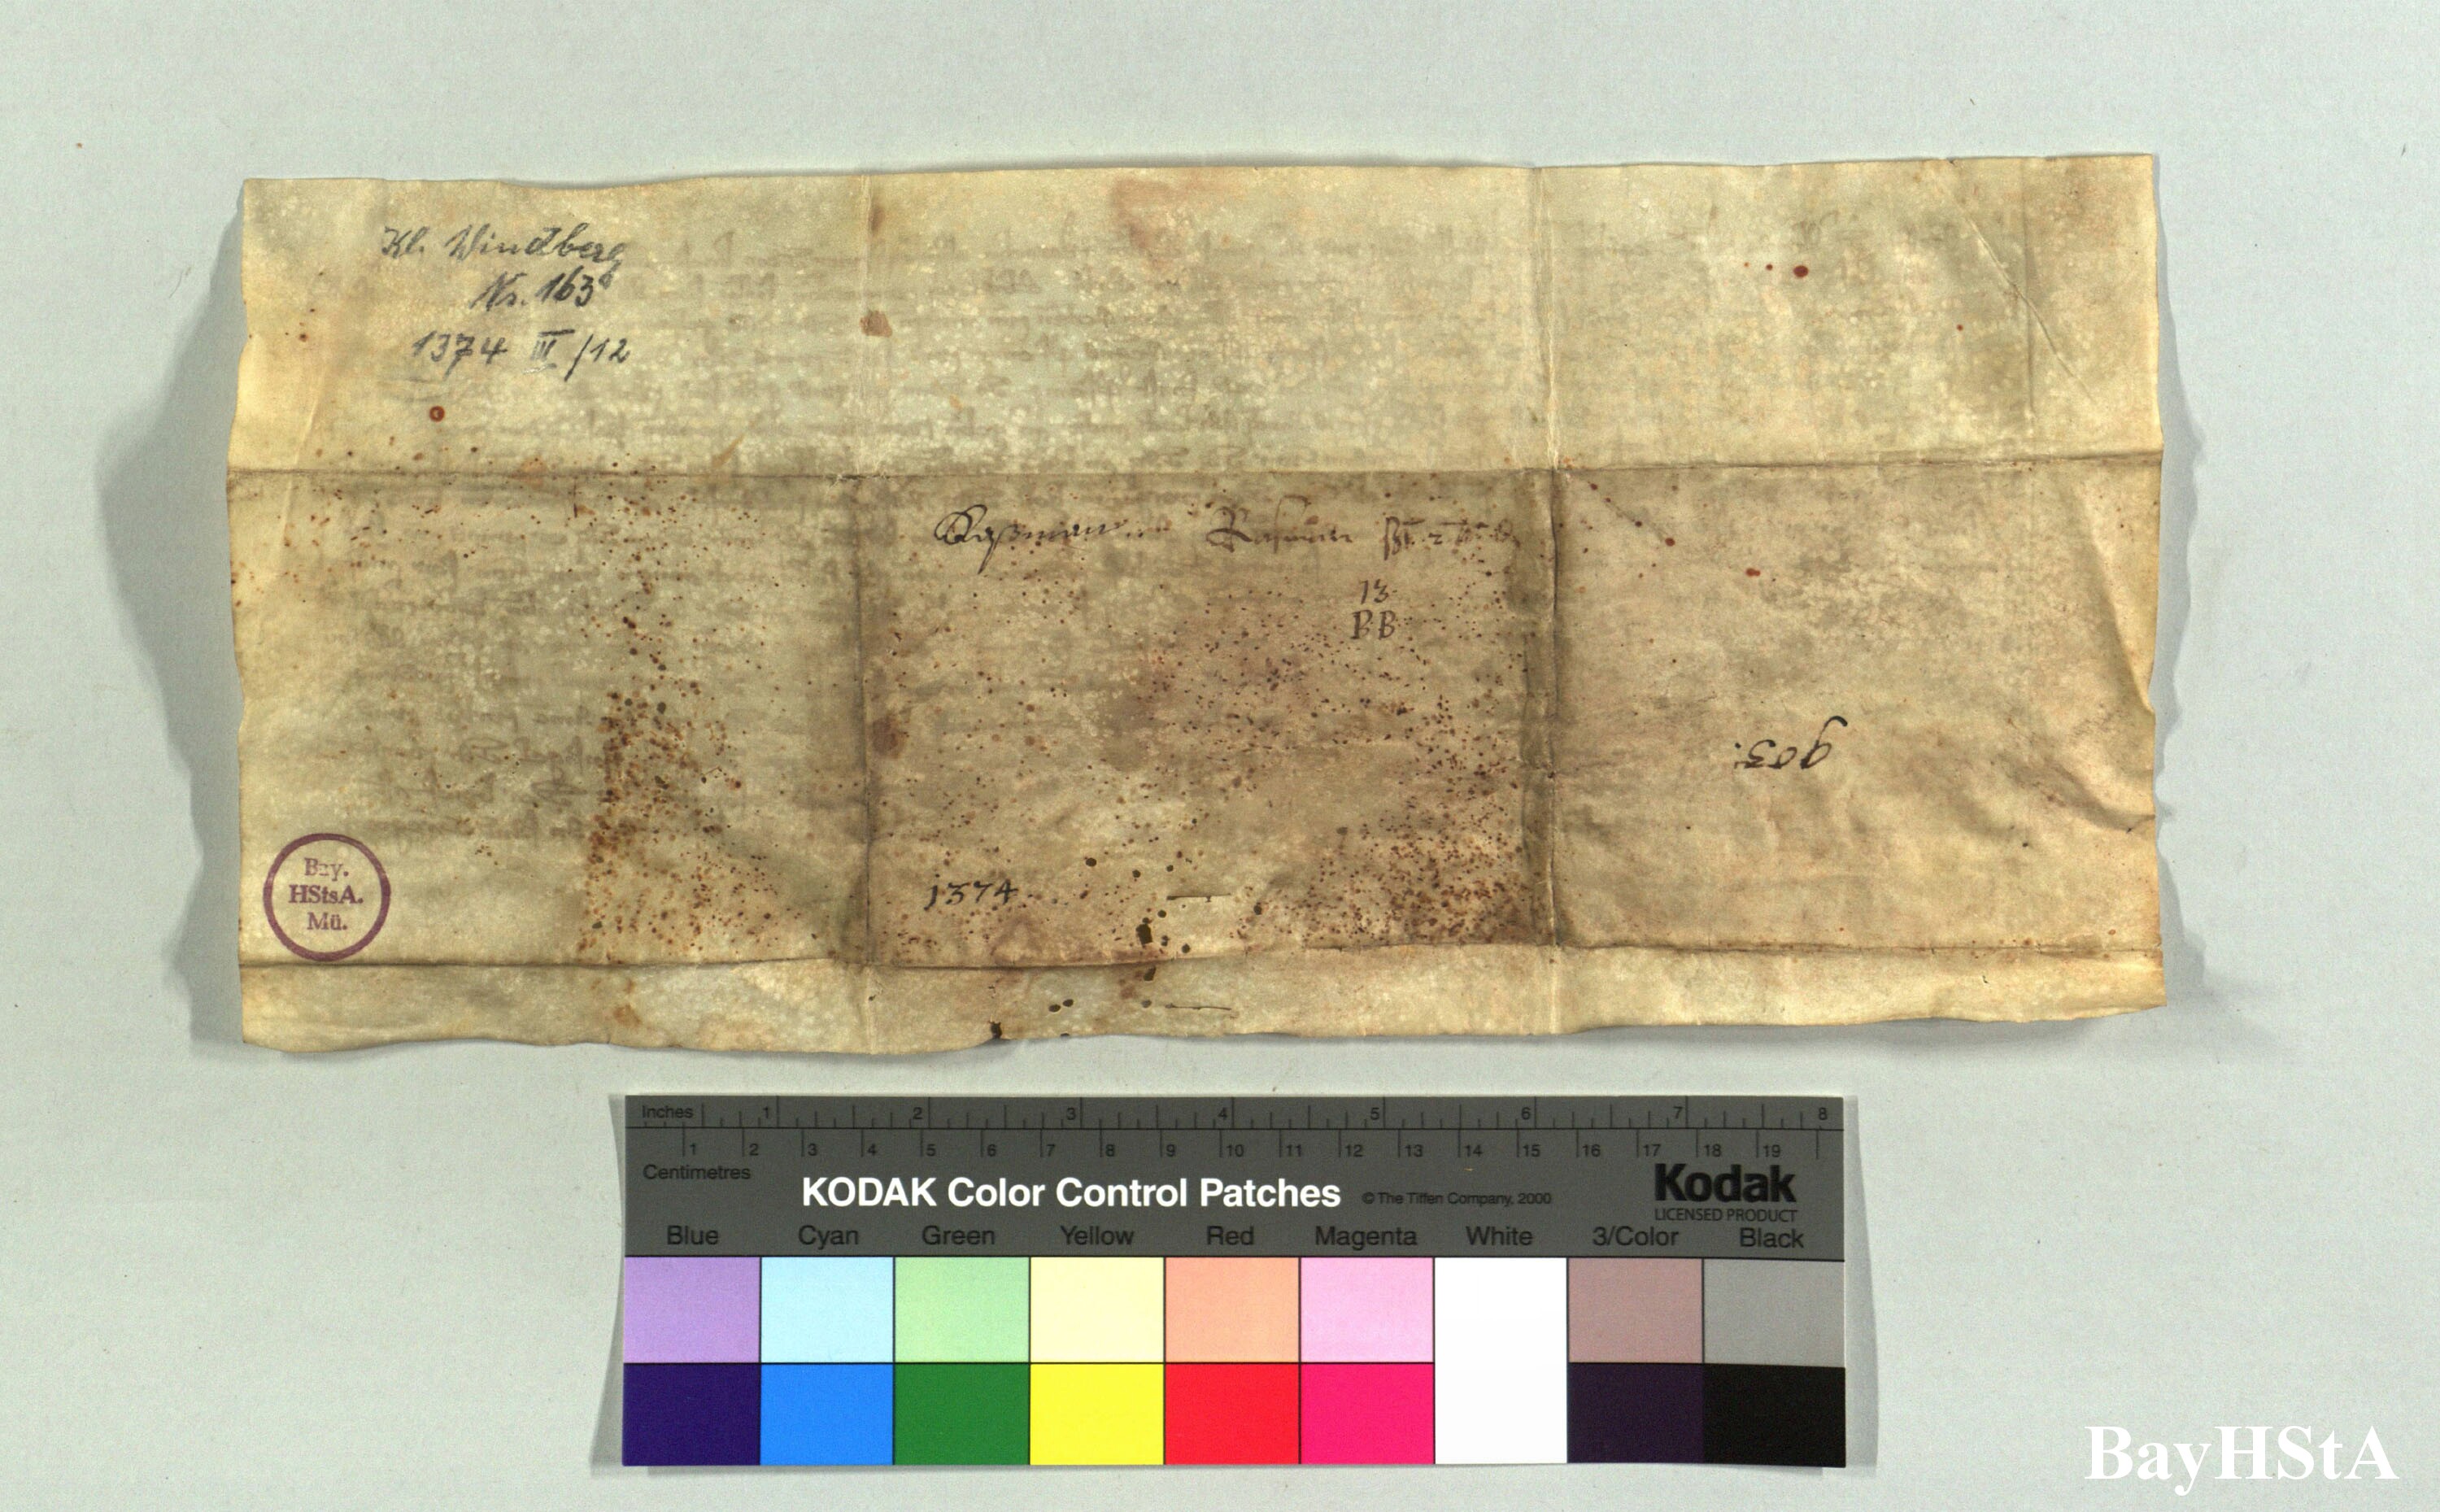 Kl. Windberg
Nr. 163
1374 III/12
13
BB
903.
1374
Bay.
HStsA.
Mü.
Inches 1 2 3 4 5 6 7 8
1 2 3 4 5 6 7 8 9 10 11 12 13 14 15 16 17 18 19
Centimetres
KODAK Color Control Patches © The Tiffen Company, 2000 Kodak
LICENSED PRODUCT
Blue Cyan Green Yellow Red Magenta White 3/Color Black
BayHStA